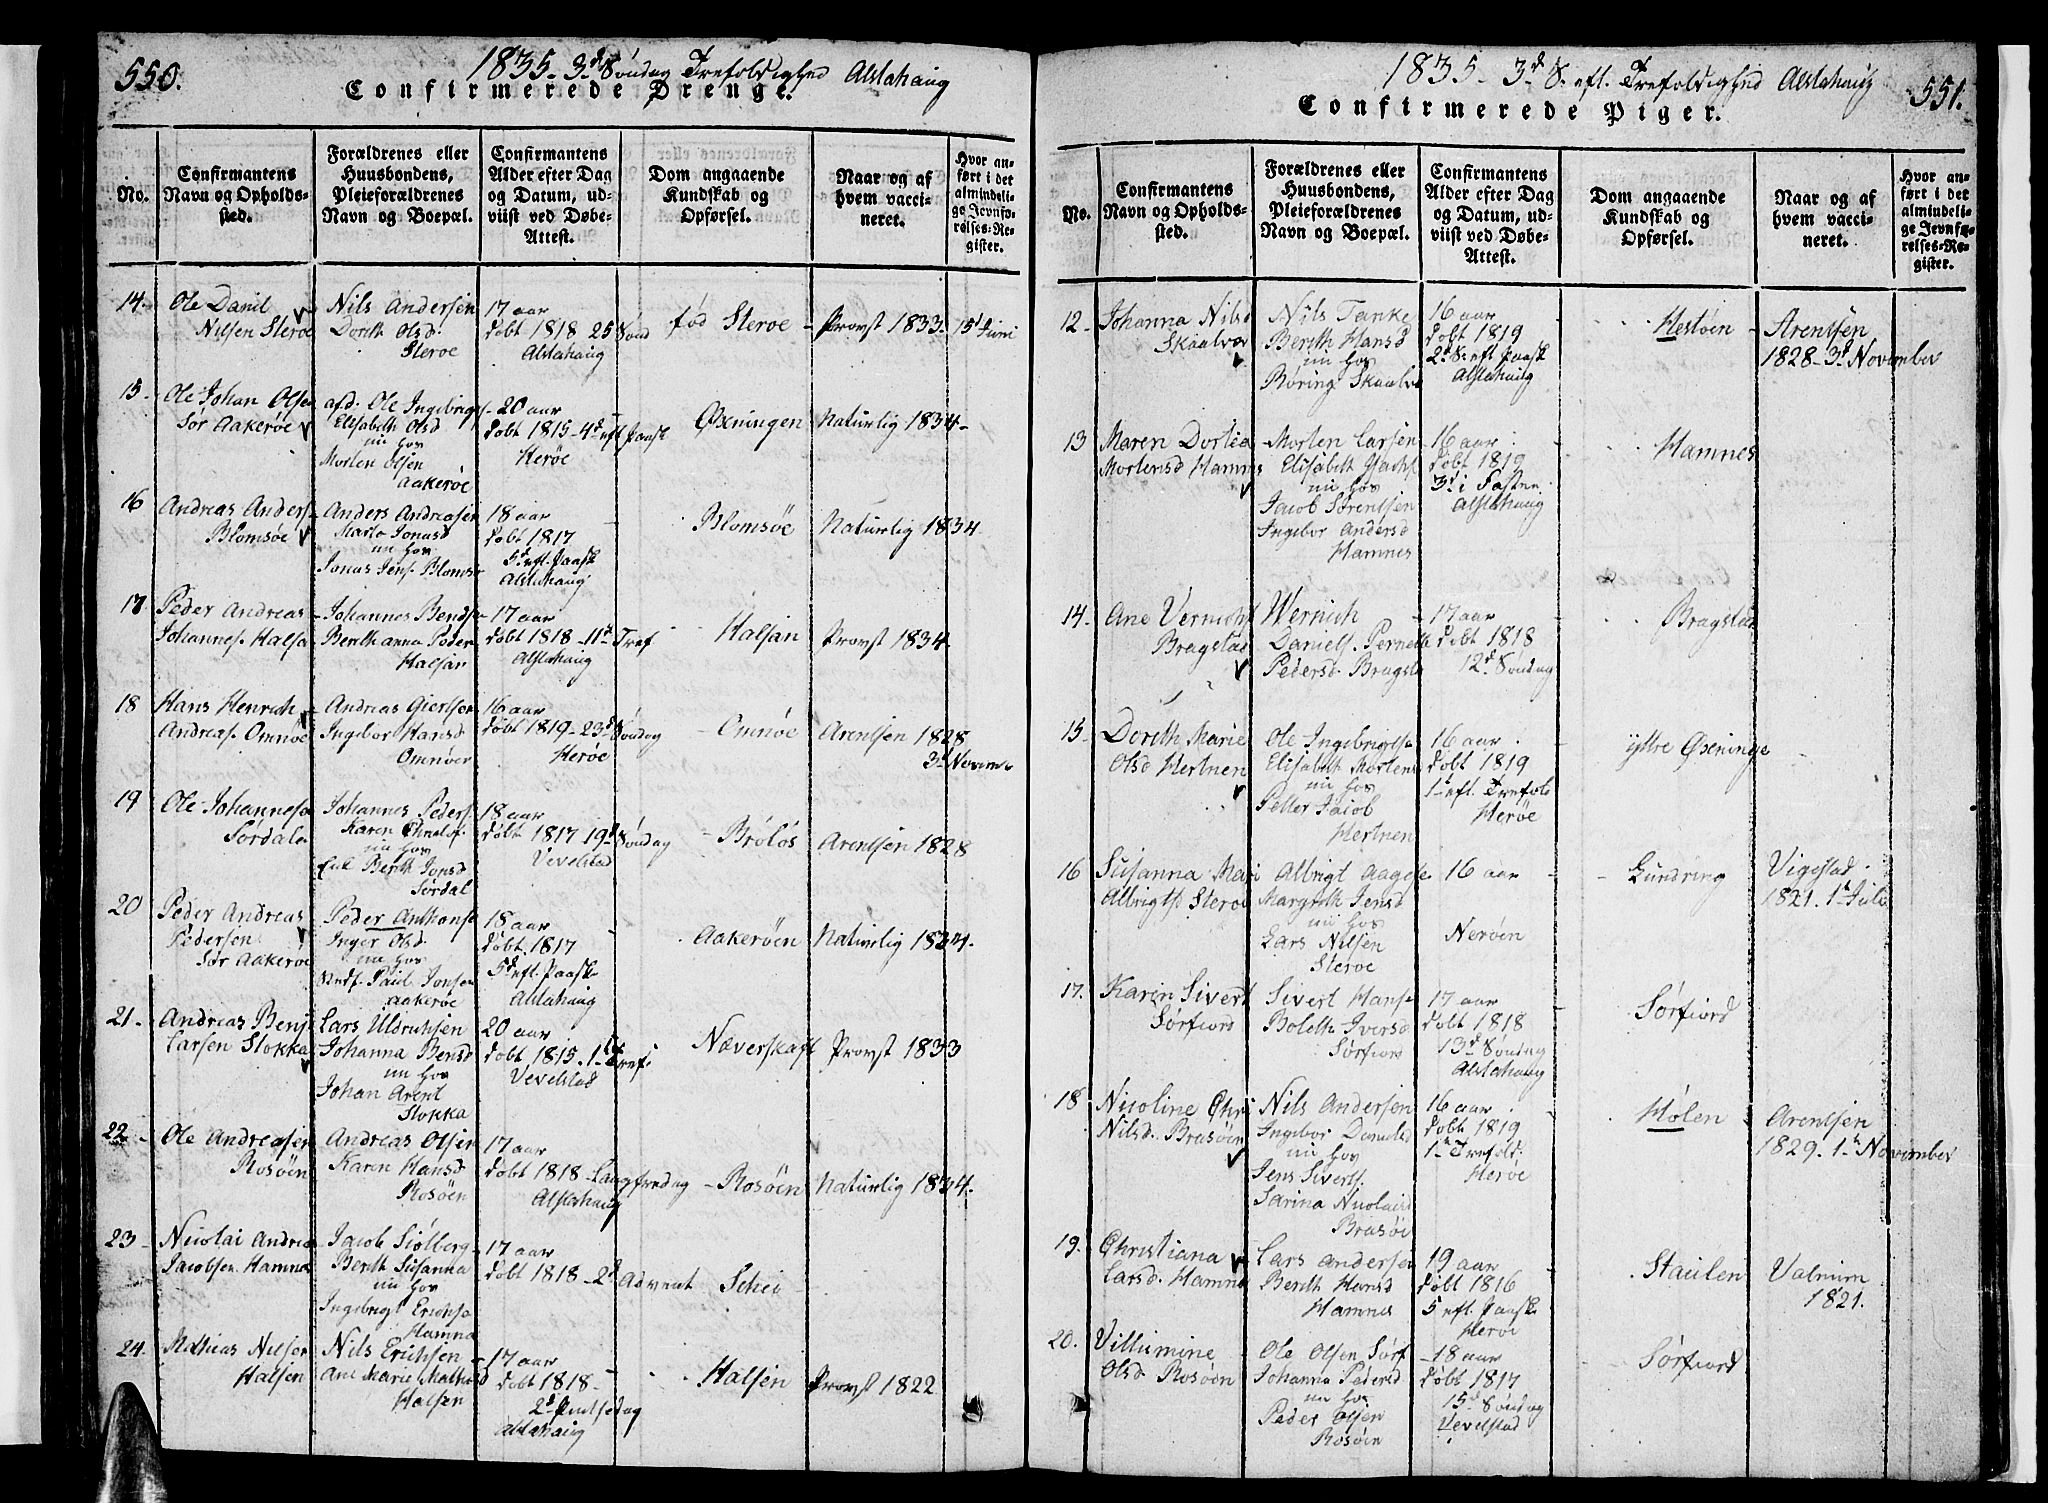 550.
1835. 3d Søndag Trefoldighed Alstahaug
Confirmerede Drenge.
No.
Confirmantens Navn og Opholds-sted.
Forældrenes eller Huusbondens, Pleieforældrenes Navn og Boepæl.
Confirmantens Alder efter Dag og Datum, ud-viist ved Døbe-Attest.
Dom angaaende Kundskab og Opførsel.
Naar og af hvem vacci-neret.
Hvor an-ført i det almindeli-ge Jevnfø-relses-Re-gister.
14.
Ole Daniel
Nilsen Steroe
Nils Andersen
Dorth Olsd.
Steroe
17 aar
døbt 1818 25 Sønd
Alstahaug
fød Steroe
Provst 1833. 15 Juni
15
Ole Johan Olsen
Sør Aakerøe
afd. Ole Ingebrigts
Elisabeth Olsd
nu hos
Morten Olsen
Aakerøe
20 aar
døbt 1815 4d eft Paask
Herøe
Øxningen
Naturlig 1834
16
Andreas Anders
Blomsøe
Anders Andreasen
Marta Jonasd
nu hos
Jonas Jens. Blomsø
18 aar
døbt 1817
5d eft. Paask
Alstahaug
Blomsøe
Naturlig 1834
17
Peder Andreas
Johannes. Halsa
Johannes Bends
Berith anna Peder
Halsan
17 aar
døbt 1818 11d Tref
Alstahaug
Halsan
Provst 1834.
18
Hans Henrich
Andreas. Omnøe
Andreas Giertsen
Ingebor Hansd
Omnøen
16 aar
døbt 1819 23d Søndag
Herøe
Omnøe
Arentsen 1828
3d Novem
19
Ole Johannesa
Sørdale
Johannes Peders
Karen Christof.
nu hos
Berith Jonsd
Sørdal
18 aar
døbt 1817 19d Søndag
Vevelstad
Brøløs
Arentsen 1828
20
Peder Andreas
Pedersen
Sør Aakerøe
Peder Anthons
Inger Olsd
nu hos
Paul Jonsen
Aakerøe
18 aar
døbt. 1817
5d eft. Paask
Alstahaug
Aakerøen
Naturlig 1834.
21
Andreas Benj
Larsen Stokka
Lars Uldrichsen
Johanna Bensd
nu hos
Johan Arent
Stokka
20 aar
døbt 1815. 1st Tref.
Vevelstad
Næverskaft
Provst 1833
22
Ole Andreasen
Rosøen
Andreas Olsen
Karen Hansd
Rosøen
17 aar
døbt 1818 Langfredag
Alstahaug
Rosøen
Naturlig 1834.
23
Nicolai Andrea
Jacobsen Hamna
Jacob Siølberg
Berith Susanna
nu hos
Ingebrigt Erichse
Hamna
17 aar
døbt 1818 2d Advent
Schei
24.
Mathias Nilsen
Halsen
Nils Erichsen
Ane Marie Mathisd
Halsen
17 aar
døbt 1818
2d Pindsedag
Alstahaug
Halsen
Provst 1822
1835 3d S. eft. Trefoldighed Alstahaug
551.
Confirmerede Piger.
No.
Confirmantens Navn og Opholds-sted.
Forældrenes eller Huusbondens, Pleieforældrenes Navn og Boepæl.
Confirmantens Alder efter Dag og Datum, ud-viist ved Døbe-Attest.
Dom angaaende Kundskab og Opførsel.
Naar og af hvem vacci-neret.
Hvor an-ført i det almindeli-ge Jevnfø-relses-Re-gister.
12
Johanna Nilsd
Skaalvær
Nils Tanke
Berith Hansd
nu hos
Børing Skaalvæ
16 aar
døbt 1819
2d S. eft Paask
Alstahaug
Hestøen
Arentsen
1828 3d November
13
Maren Dortea
Mortensd Hamnes
Morten Larsen
Elisabeth
nu hos
Jacob Sørentsen
Ingebor Andersd
Hamnes
16 aar
døbt 1819
3d i Fasten
Alstahaug
Hamnes
14.
Ane Vernichs
Bragstad
Wernich
Daniels. Pernella
Pedersd. Bragsta
17 aar
døbt 1818
12d Søndag
Bragstad
15
Dorith Marie
Olsd Hertnen
Ole Ingebrigtse
Elisabeth Mortens
nu hos
Petter Jacob
Hertnen
16 aar
døbt 1819
1st eft. Trefold
Herøe
yttre Øxeninge
16
Susanna Mari
Albrigts Steroe
Albrigt Aagese
Margreth Jensd
nu hos
Lars Nilsen
Steroe
16 aar
Nerøen
Gundring
Vigestad
1821. 1st Juli
17.
Karin Sivert
Sørfiord
Sivert Hanse
Boleth Iversd
Sørfiord
17 aar
døbt 1818
13d Søndag
Alstahaug
Sørfiord
18
Nicoline Chri
Nilsd. Brasøen
Nils Andersen
Ingebor Danielsd
nu hos
Jens Siverts.
Sarina Nicolaisd
Brasøe
16 aar
døbt 1819
1ste Trefold.
Herøe
Hølen
Arentsen
1829. 1ste November
19.
Christiana
Larsd. Hamne
Lars Andersen
Berith Hansd
Hamnes
19 aar
døbt 1816
5 eft. Paask
Herøe
Staulen
Valnum
1821.
20.
Villumine
Olsd Rosøen
Ole Olsen Sørf
Johanna Pedersd
nu hos
Peder Olsen
Rosøen
18 aar
døbt 1817
15d Søndag
Vevelstad
Sørfiord